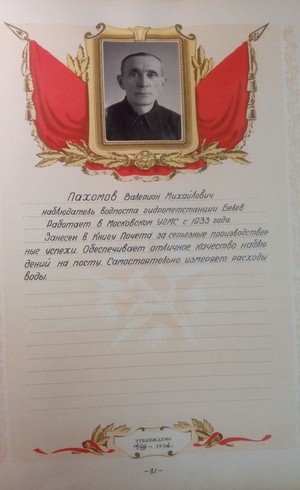 Пахомов Валериан Михайлович
наблюдатель водпоста гидрометстанции Белев
Работает в Московском УГМС с 1933 года.
Занесен в Книгу Почета за серьезные производствен-
ные успехи. Обеспечивает отличное качество наблю-
дений на посту. Самостоятельно измеряет расходы
воды.
УТВЕРЖДЕНО
-31-